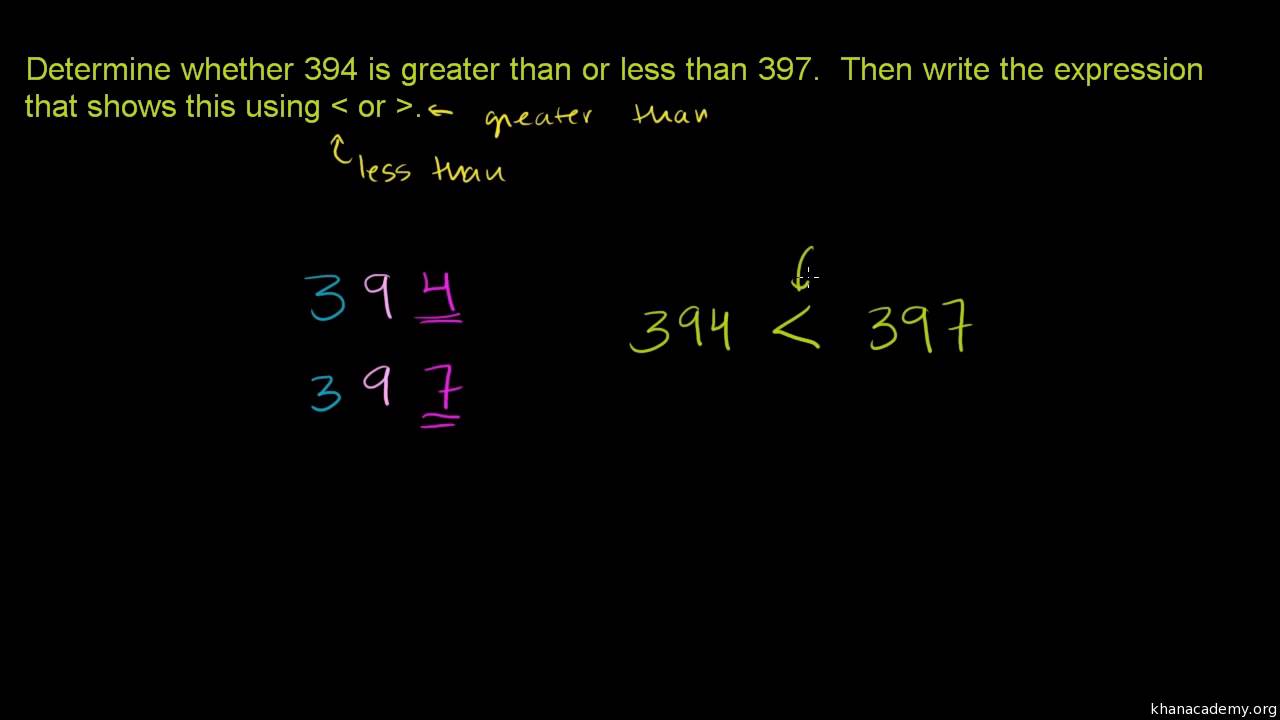 Determine whether 394 is greater than or less than 397. Then write the expression
that shows this using < or >. ← greater than
less than
394
394 < 397
397
khanacademy.org